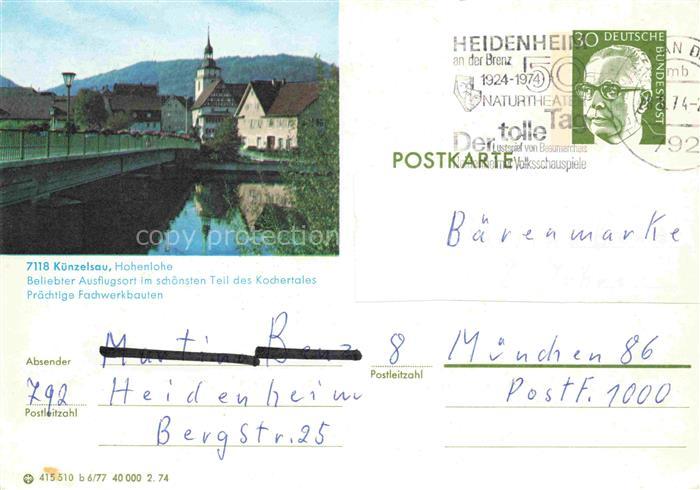 HEIDENHEIM
an der Brenz
1924-1974
50
NATURTHEATER
Der tolle Tag
Lustspiel von Beaumarchais
Volksschauspiele
30 DEUTSCHE
BUNDESPOST
74-
792
POSTKARTE
copyright protection
7118 Künzelsau, Hohenlohe
Beliebter Ausflugsort im schönsten Teil des Kochertales
Prächtige Fachwerkbauten
Bärenmarke
Absender
792 Heidenheim
Postleitzahl
Bergstr. 25
8 München 86
Postleitzahl
Postf. 1000
415 510 b 6/77 40 000 2. 74